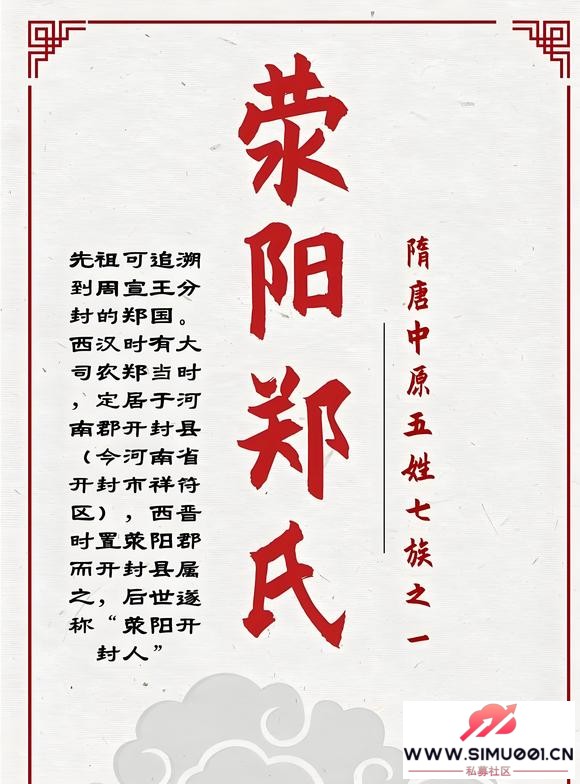 荥阳郑氏
隋唐中原五姓七族之一
先祖可追溯
到周宣王分
封的郑国。
西汉时有大
司农郑当时
，定居于河
南郡开封县
（今河南省
开封市祥符
区），西晋
时置荥阳郡
而开封县属
之，后世遂
称“荥阳开
封人”
WWW.SIMU001.CN
私募社区